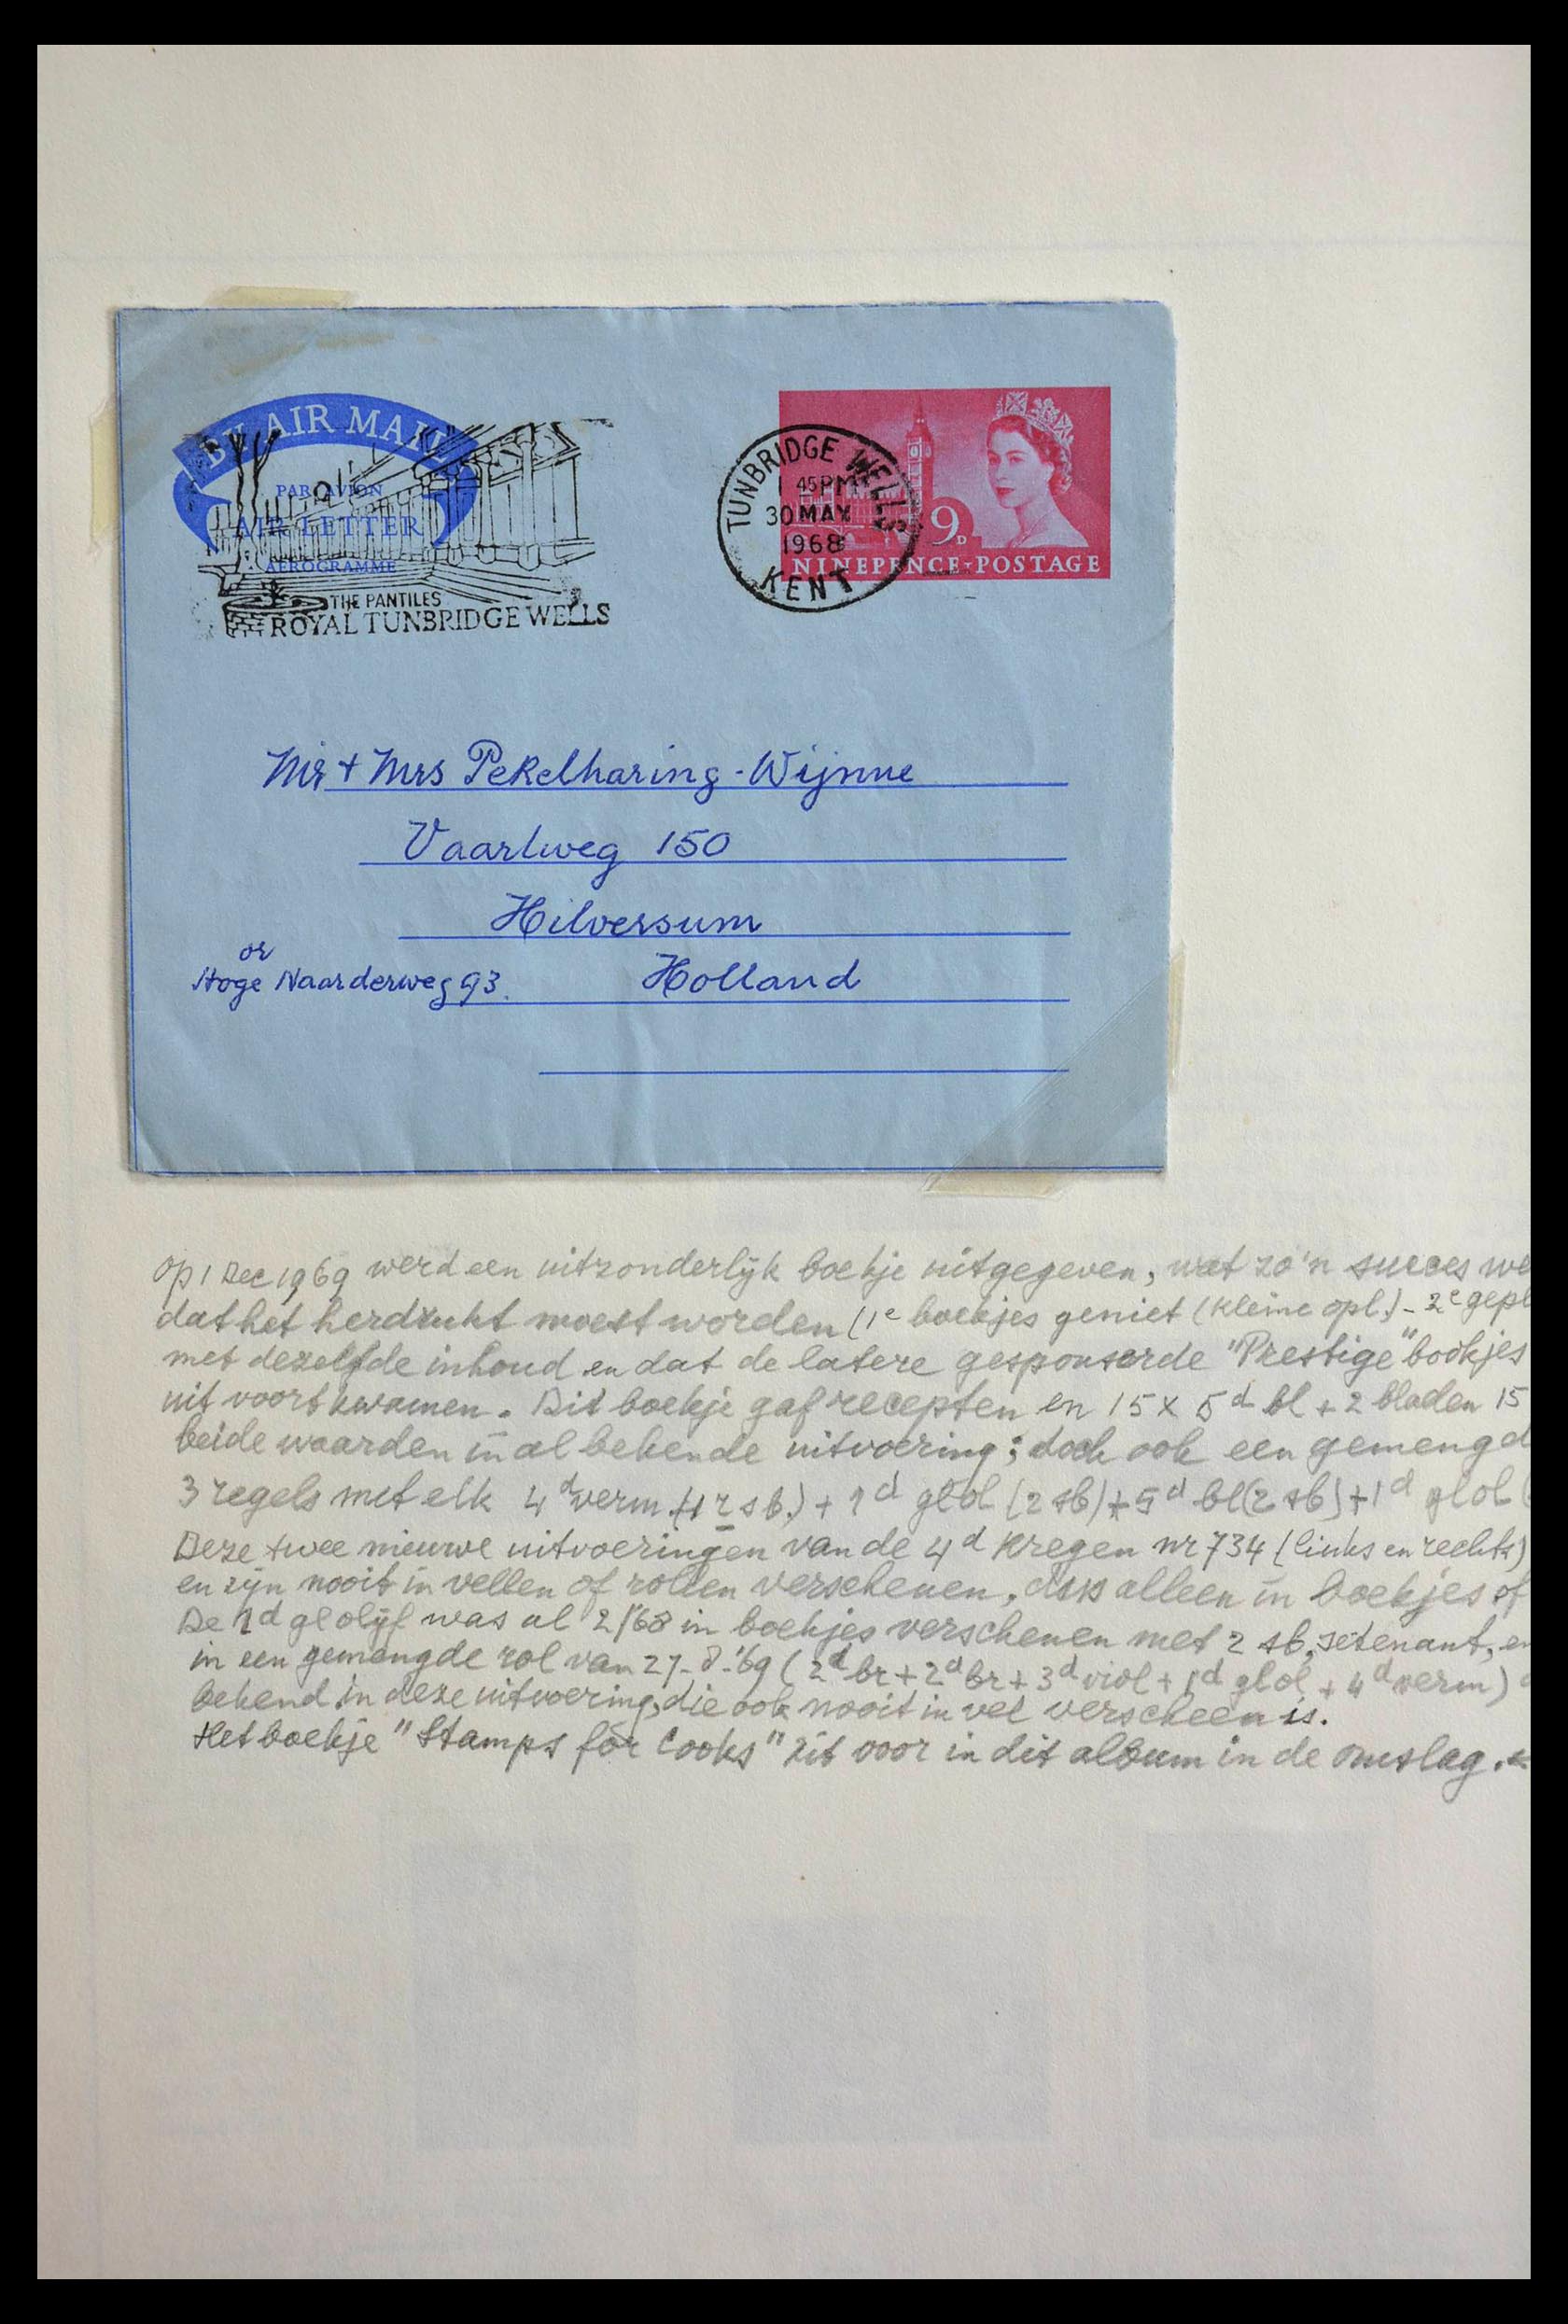 BY AIR MAIL
PAR AVION
AIR LETTER
AEROGRAMME
THE PANTILES
ROYAL TUNBRIDGE WELLS
TUNBRIDGE WELLS
1 45 PM
30 MAY
1968
KENT
9D
NINEPENCE-POSTAGE
Mr + Mrs Pekelharing-Wijnne
Vaartweg 150
Hilversum
or
Hoge Naarderweg 93. Holland
op 1 Dec 1969 werd een uitzonderlijk boekje uitgegeven, wat zo'n succes we
dat het herdrukt moest worden (1e boekjes geniet (kleine opl.) - 2e gepl
met dezelfde inhoud en dat de latere gesponserde "Prestige" bookjes
uit voortkwamen. Dit boekje gaf recepten en 15 x 5d bl + 2 bladen 15
beide waarden in al bekende uitvoering; doch ook een gemengd
3 regels met elk 4d verm. (1r sb.) + 1d glol (2 sb) + 5d bl (2 sb) + 1d glol (
Deze twee nieuwe uitvoeringen van de 4d kregen nr 734 (links en rechts)
en zijn nooit in vellen of rollen verschenen, dus alleen in boekjes of
De 1d glolijf was al 2/'68 in boekjes verschenen met 2 sb, setenant, en
in een gemengde rol van 27-8-'69 (2d br + 2d br + 3d viol + 1d glol + 4d verm)
bekend in deze uitvoering, die ook nooit in vel verscheen is.
Het boekje "Stamps for Cooks" zit voor in dit album in de omslag.